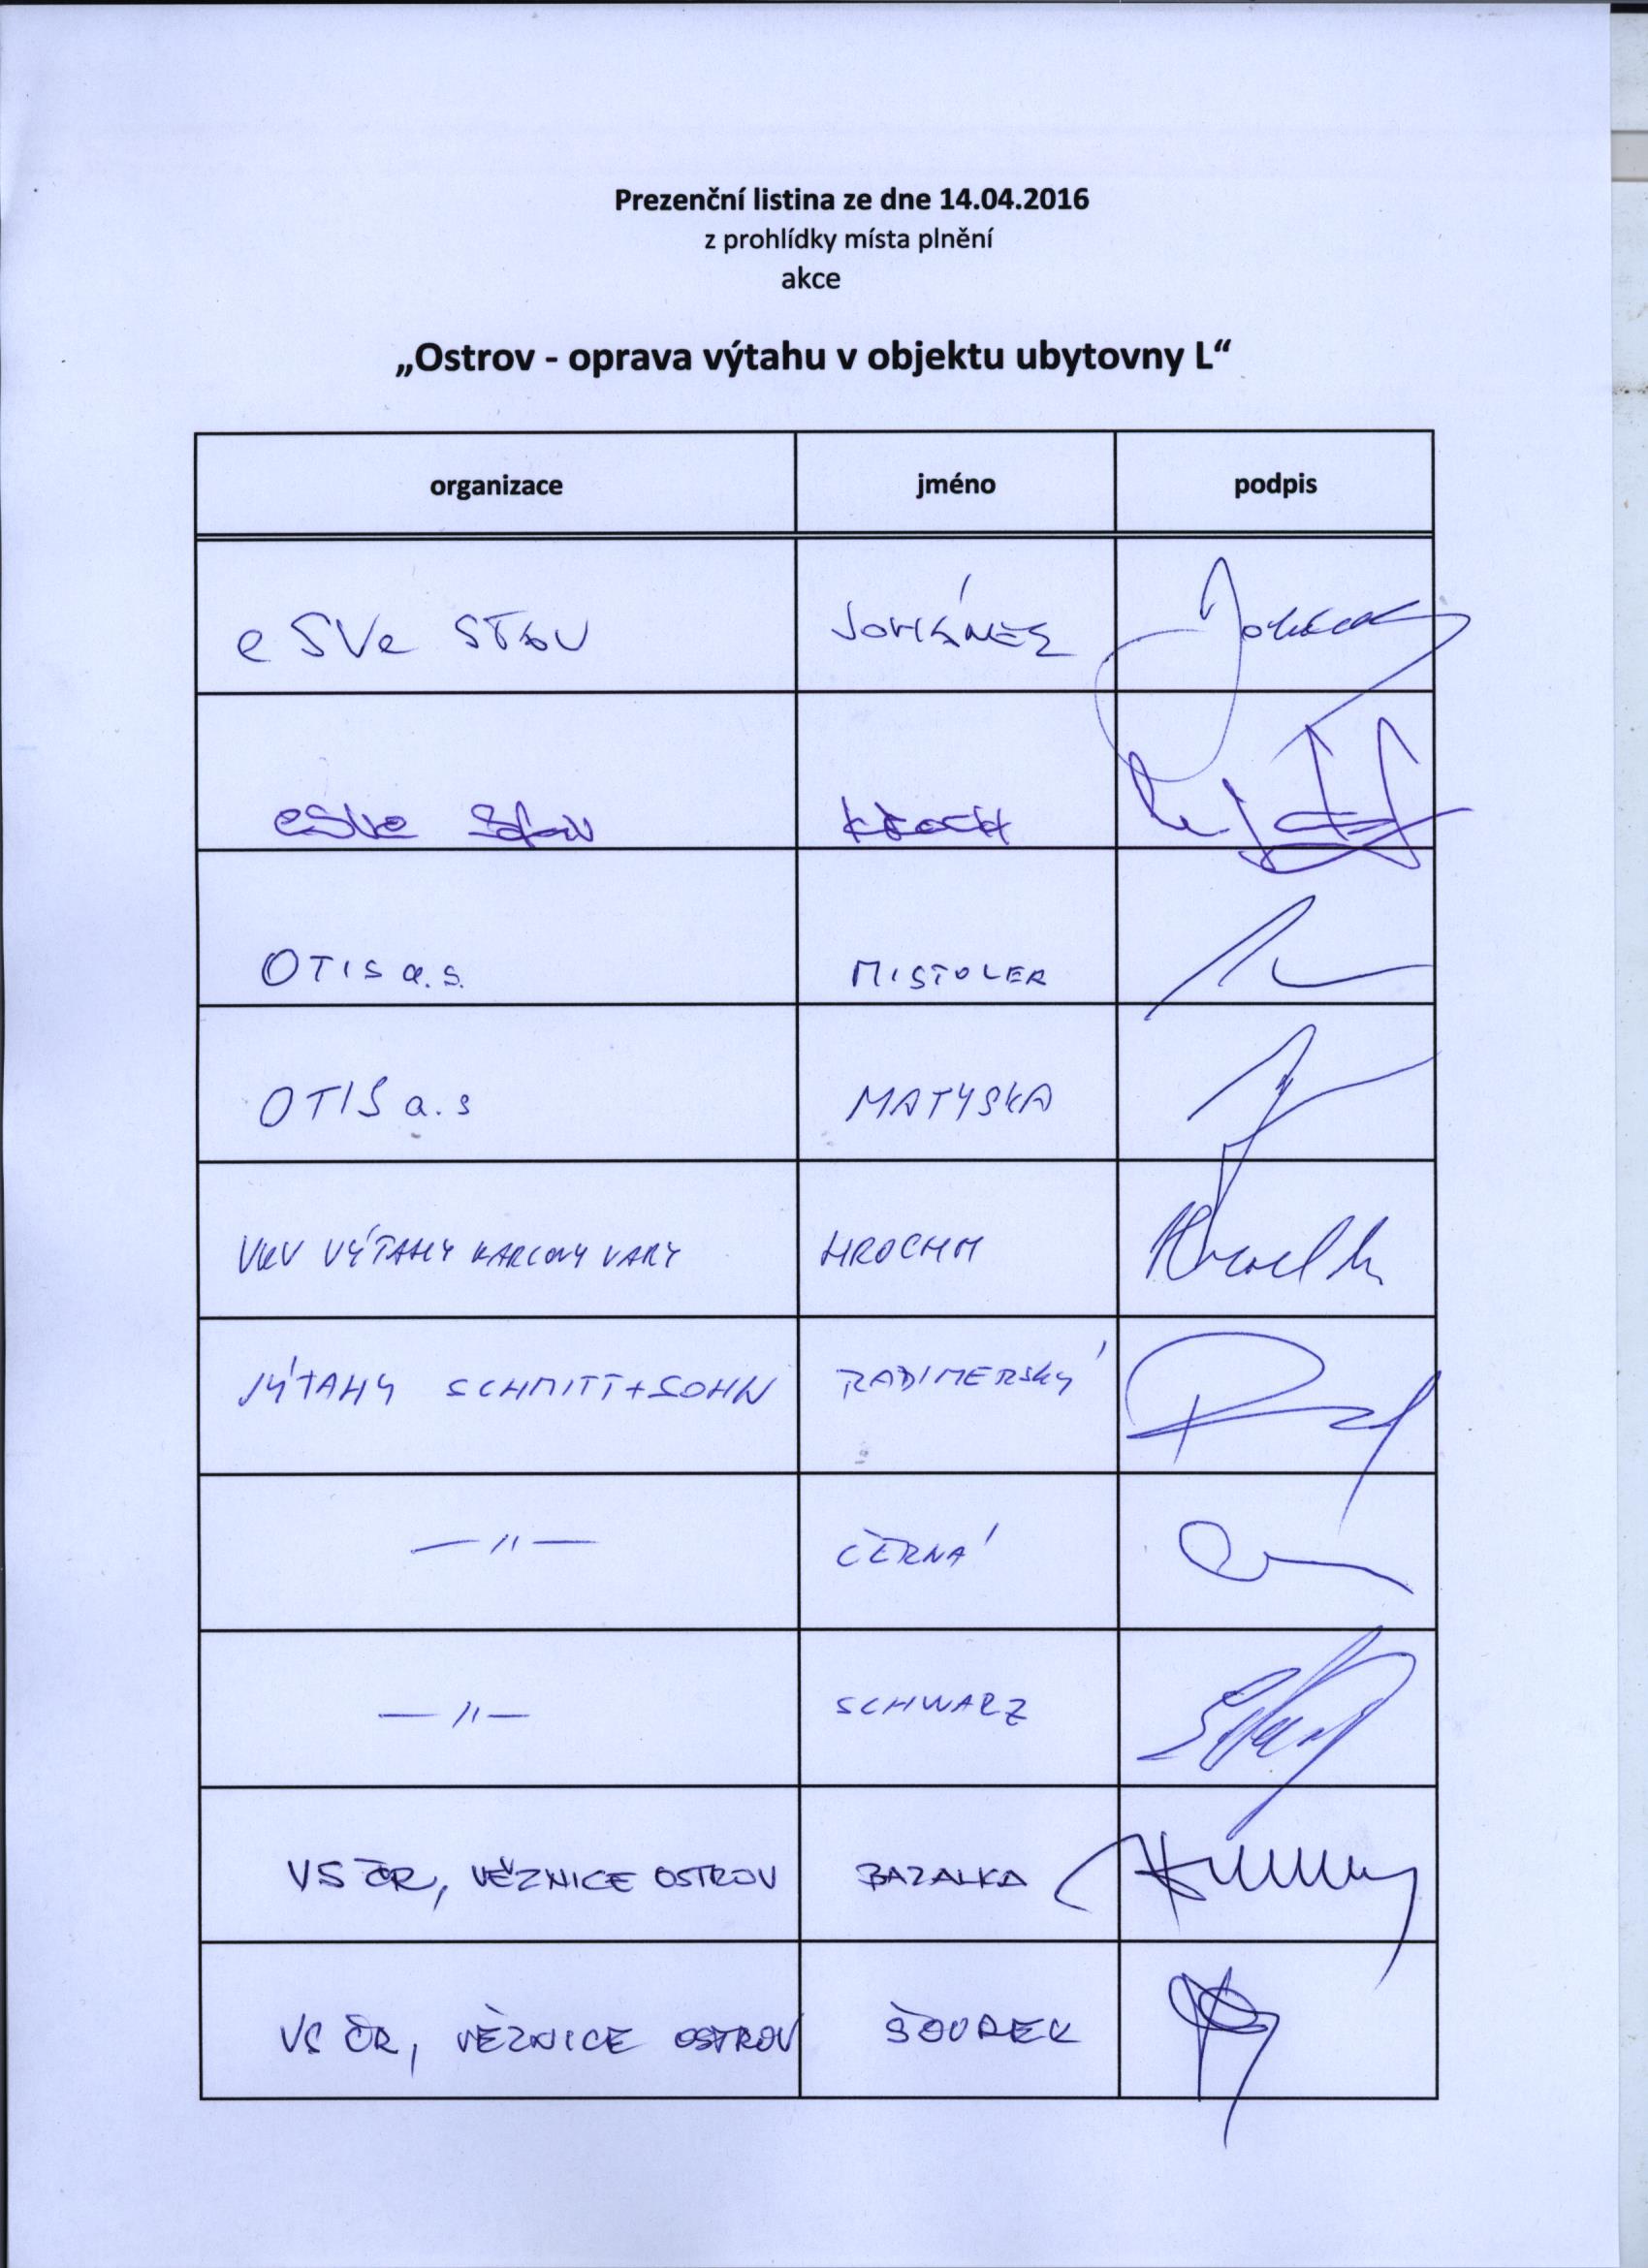 Prezenční listina ze dne 14.04.2016
z prohlídky místa plnění
akce
„Ostrov - oprava výtahu v objektu ubytovny L“
organizace jméno podpis
e SVe STAV JOHÁNES
eSVe Stav
OTIS a.s. MISTOLER
OTIS a.s MATYSKA
VKV VÝTAHY KARLOVY VARY HROCHM
VÝTAHY SCHMITT+SOHN RADIMERSKÝ
— " — ČERNÁ
— " — SCHWARZ
VS ČR, VĚZNICE OSTROV BAZALKA
VS ČR, VĚZNICE OSTROV ŠOUREK